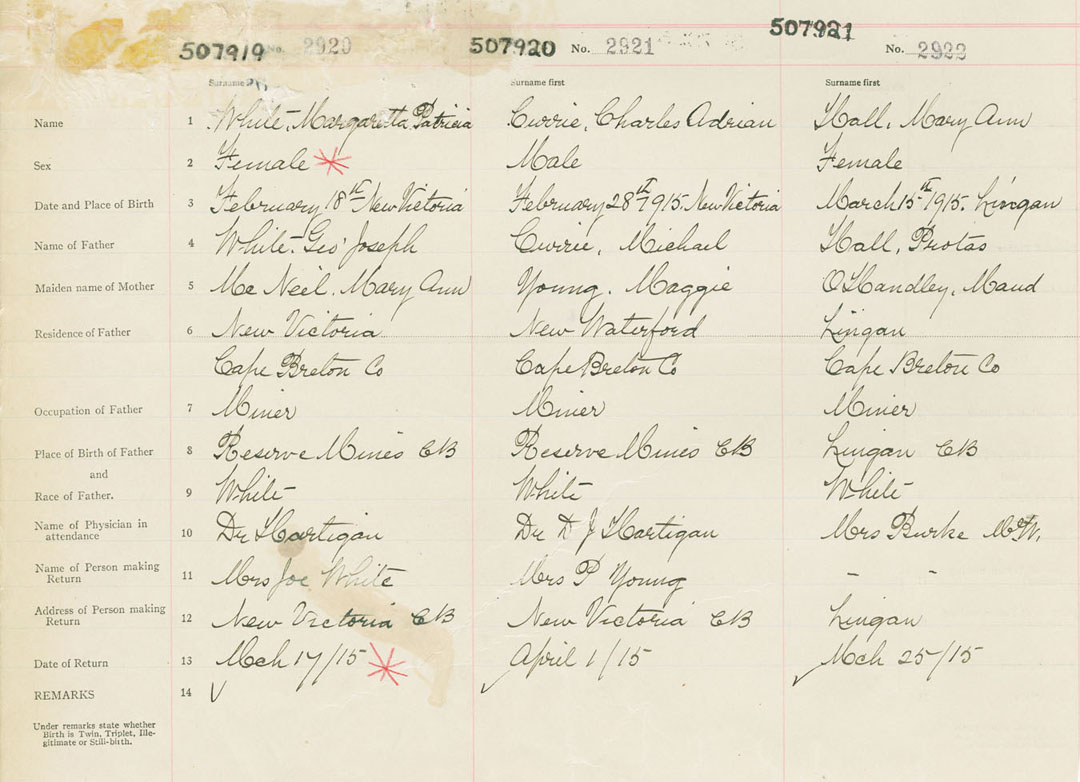 507919 No. 2920 507920 No. 2921 507921 No. 2922
Surname Surname first Surname first
Name 1 White, Margaretta Patricia Currie, Charles Adrian Hall, Mary Ann
Sex 2 Female Male Female
Date and Place of Birth 3 February 18th New Victoria February 28th 1915. New Victoria March 15th 1915. Lingan
Name of Father 4 White. Geo Joseph Currie, Michael Hall, Protas
Maiden name of Mother 5 Mc Neil. Mary Ann Young. Maggie O'Handley, Maud
Residence of Father 6 New Victoria New Waterford Lingan
Cape Breton Co Cape Breton Co Cape Breton Co
Occupation of Father 7 Miner Miner Miner
Place of Birth of Father 8 Reserve Mines CB Reserve Mines CB Lingan CB
and
Race of Father. 9 White White White
Name of Physician in
attendance 10 Dr Hartigan Dr D J Hartigan Mrs Burke
Name of Person making
Return 11 Mrs Joe White Mrs P Young - -
Address of Person making
Return 12 New Victoria CB New Victoria CB Lingan
Date of Return 13 Mch 17/15 April 1/15 Mch 25/15
REMARKS 14
Under remarks state whether
Birth is Twin, Triplet, Ille-
gitimate or Still-birth.